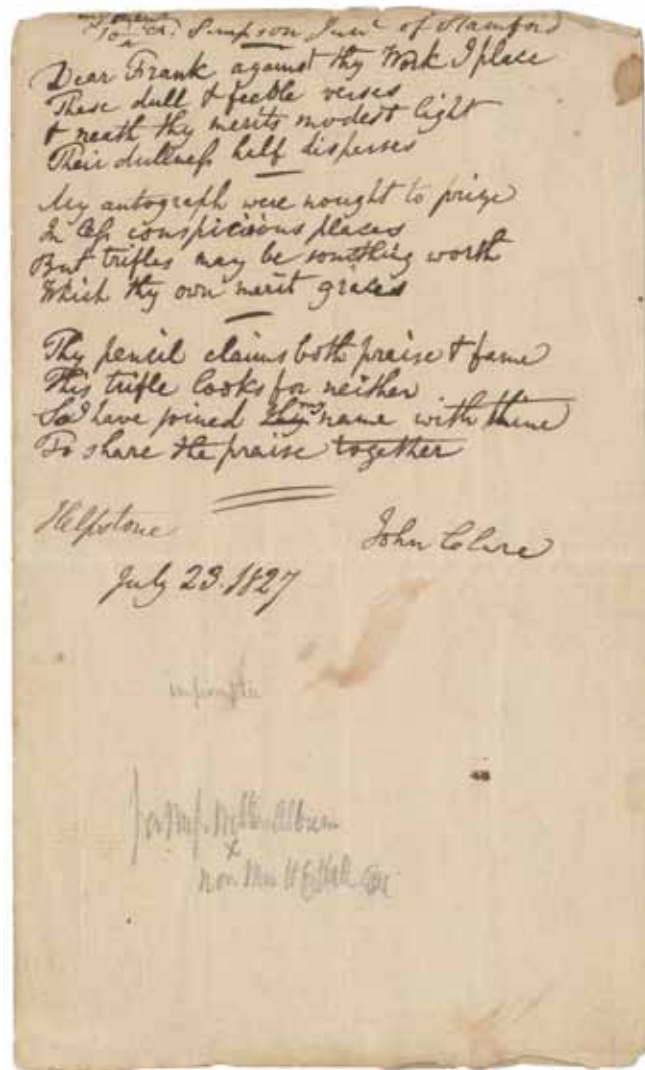 To Fr. Simpson Junr of Stamford
Dear Frank against thy Work I place
These dull & feeble verses
& neath thy merits modest light
Their dullness half disperses
My autograph were nought to prize
In conspicious places
But trifles may be somthing worth
Which thy own merit graces
Thy pencil claims both praise & fame
This trifle looks for neither
So I have joined my name with thine
To share the praise together
Helpstone
John Clare
July 23. 1827
impromptu
for Album
x
now Mrs